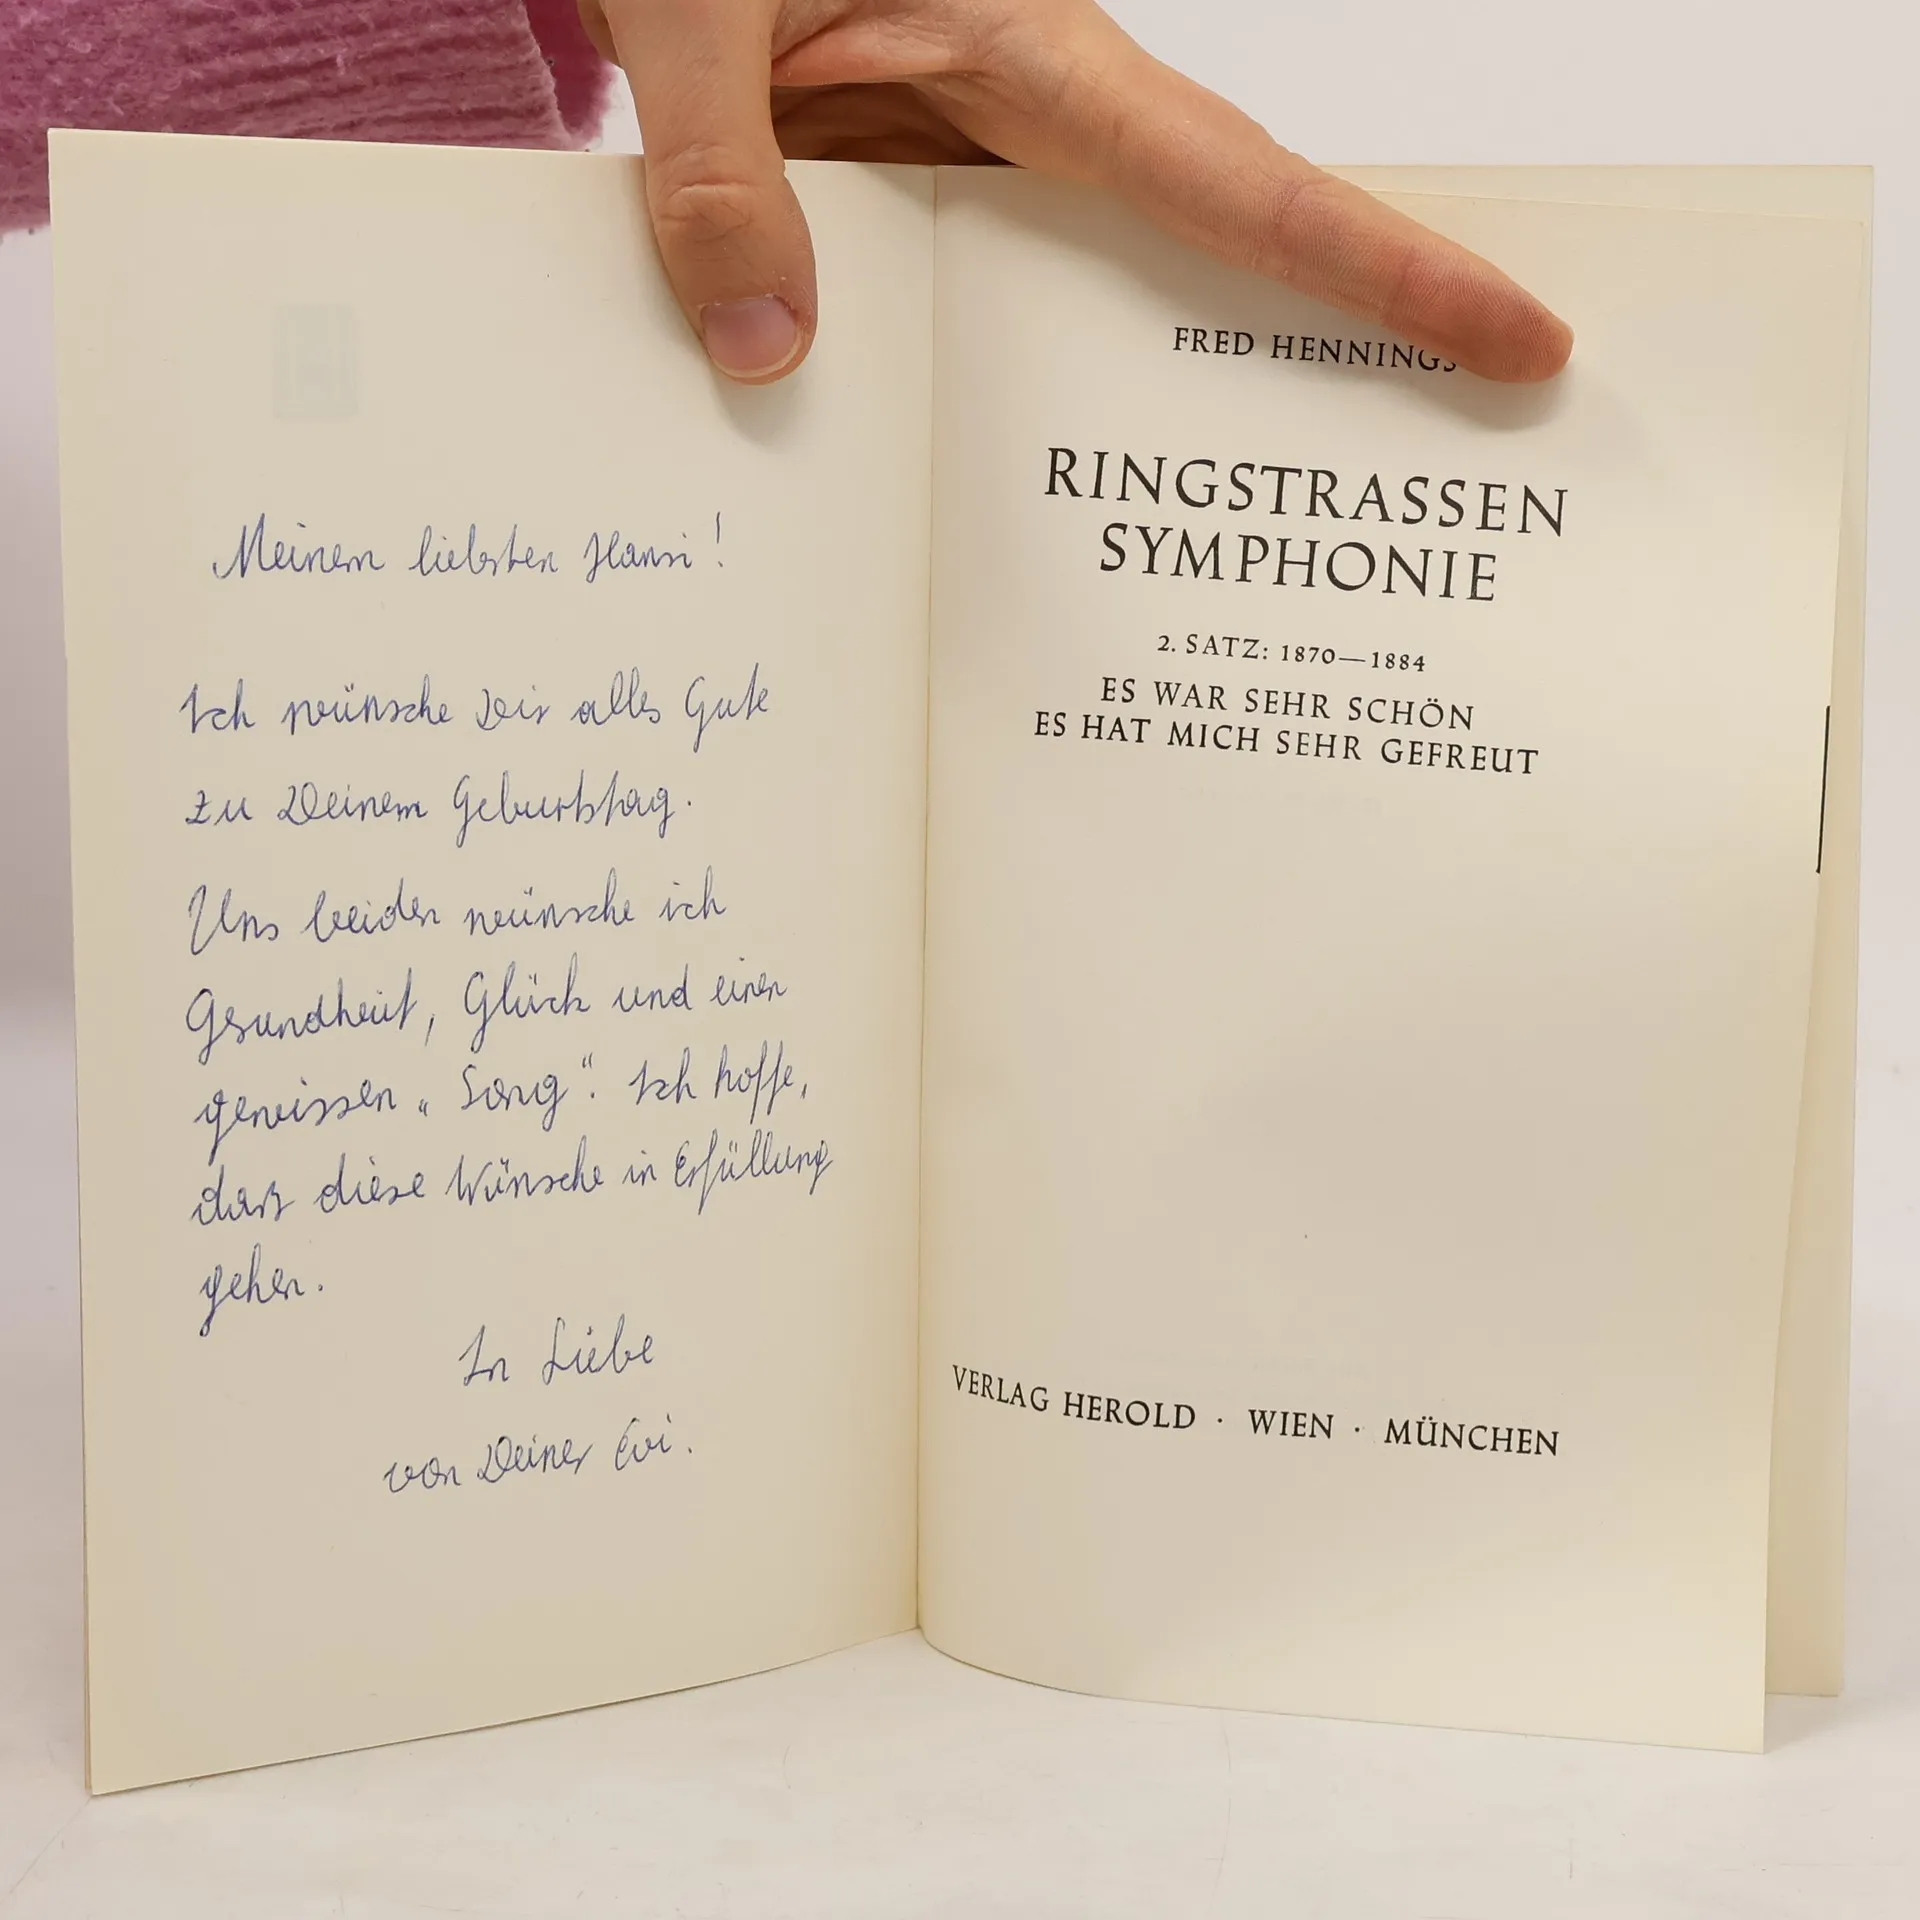 Meinem liebsten Hansi!
Ich wünsche Dir alles Gute
zu Deinem Geburtstag.
Uns beiden wünsche ich
Gesundheit, Glück und einen
gewissen „Song“. Ich hoffe,
daß diese Wünsche in Erfüllung
gehen.
In Liebe
von Deiner Evi.
FRED HENNINGS
RINGSTRASSEN
SYMPHONIE
2. SATZ: 1870—1884
ES WAR SEHR SCHÖN
ES HAT MICH SEHR GEFREUT
VERLAG HEROLD · WIEN · MÜNCHEN